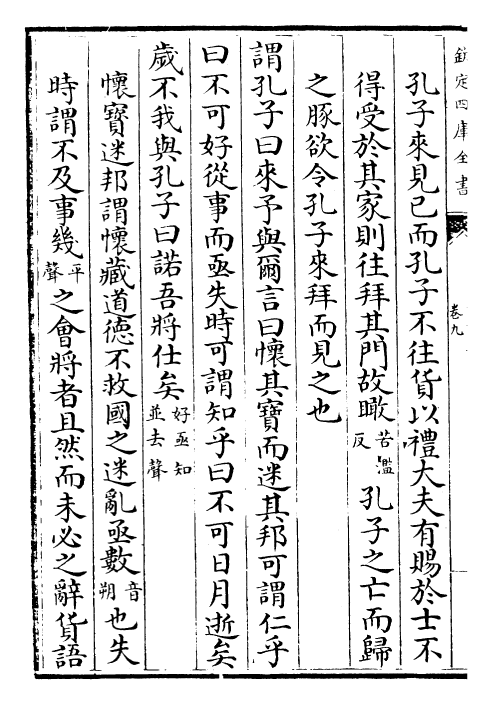 欽定四庫全書
卷九
孔子來見已而孔子不往貨以禮大夫有賜於士不
得受於其家則往拜其門故瞰苦濫反孔子之亡而歸
之豚欲令孔子來拜而見之也
謂孔子曰來予與爾言曰懷其寶而迷其邦可謂仁乎
曰不可好從事而亟失時可謂知乎曰不可日月逝矣
歲不我與孔子曰諾吾將仕矣好亟知並去聲
懷寶迷邦謂懷藏道徳不救國之迷亂亟數音朔也失
時謂不及事幾平聲之會將者且然而未必之辭貨語